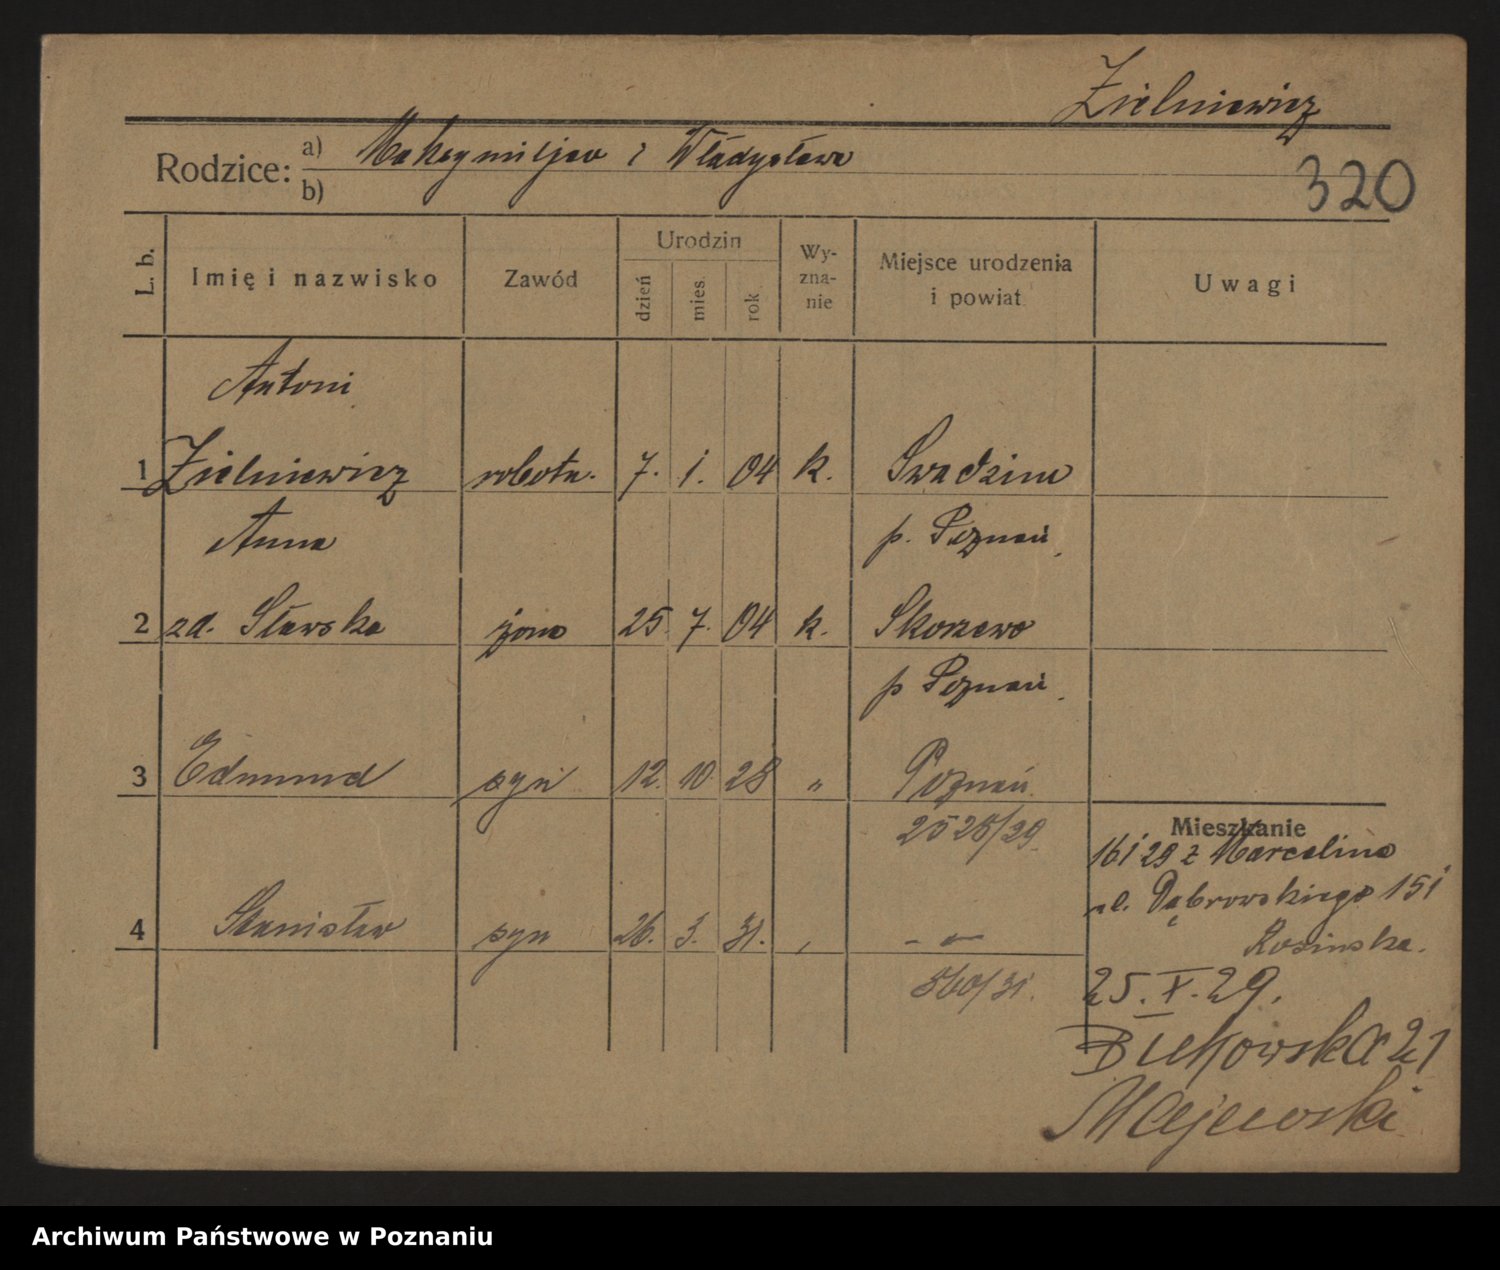 Zielniewicz
Rodzice: a) Maksymiljan i Władysława
b)
320
L. b. Imię i nazwisko Zawód Urodzin dzień mies. rok Wy-zna-nie Miejsce urodzenia i powiat Uwagi
Antoni
1 Zielniewicz robotn. 7. 1. 04 k. Swadzim
Anna p. Poznań
2 zd. Sławska żona 25. 7. 04 k. Skorzewo
p Poznań
3 Edmund syn 12. 10. 28 „ Poznań
2525/29
Mieszkanie
16 i 29 z Marcelina
ul. Dąbrowskiego 151
4 Stanisław syn 26. 3. 31. - " -
Rosinska.
560/31.
25. X. 29.
Bukowska 21
Majewski
Archiwum Państwowe w Poznaniu